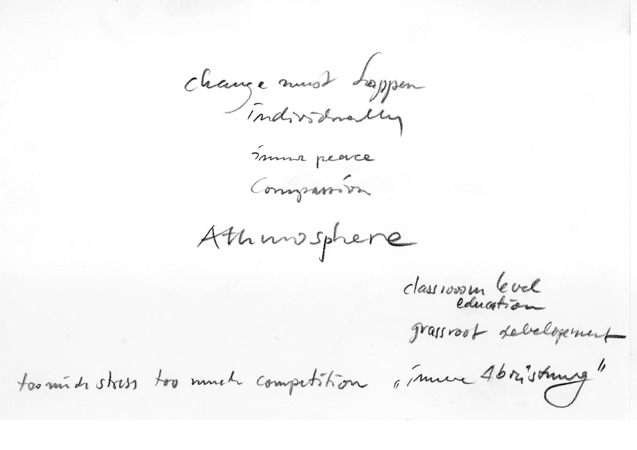 change must happen
individually
inner peace
Compassion
Athmosphere
classroom level
education
grassroot developement
too much stress too much competition „innere Abrüstung"